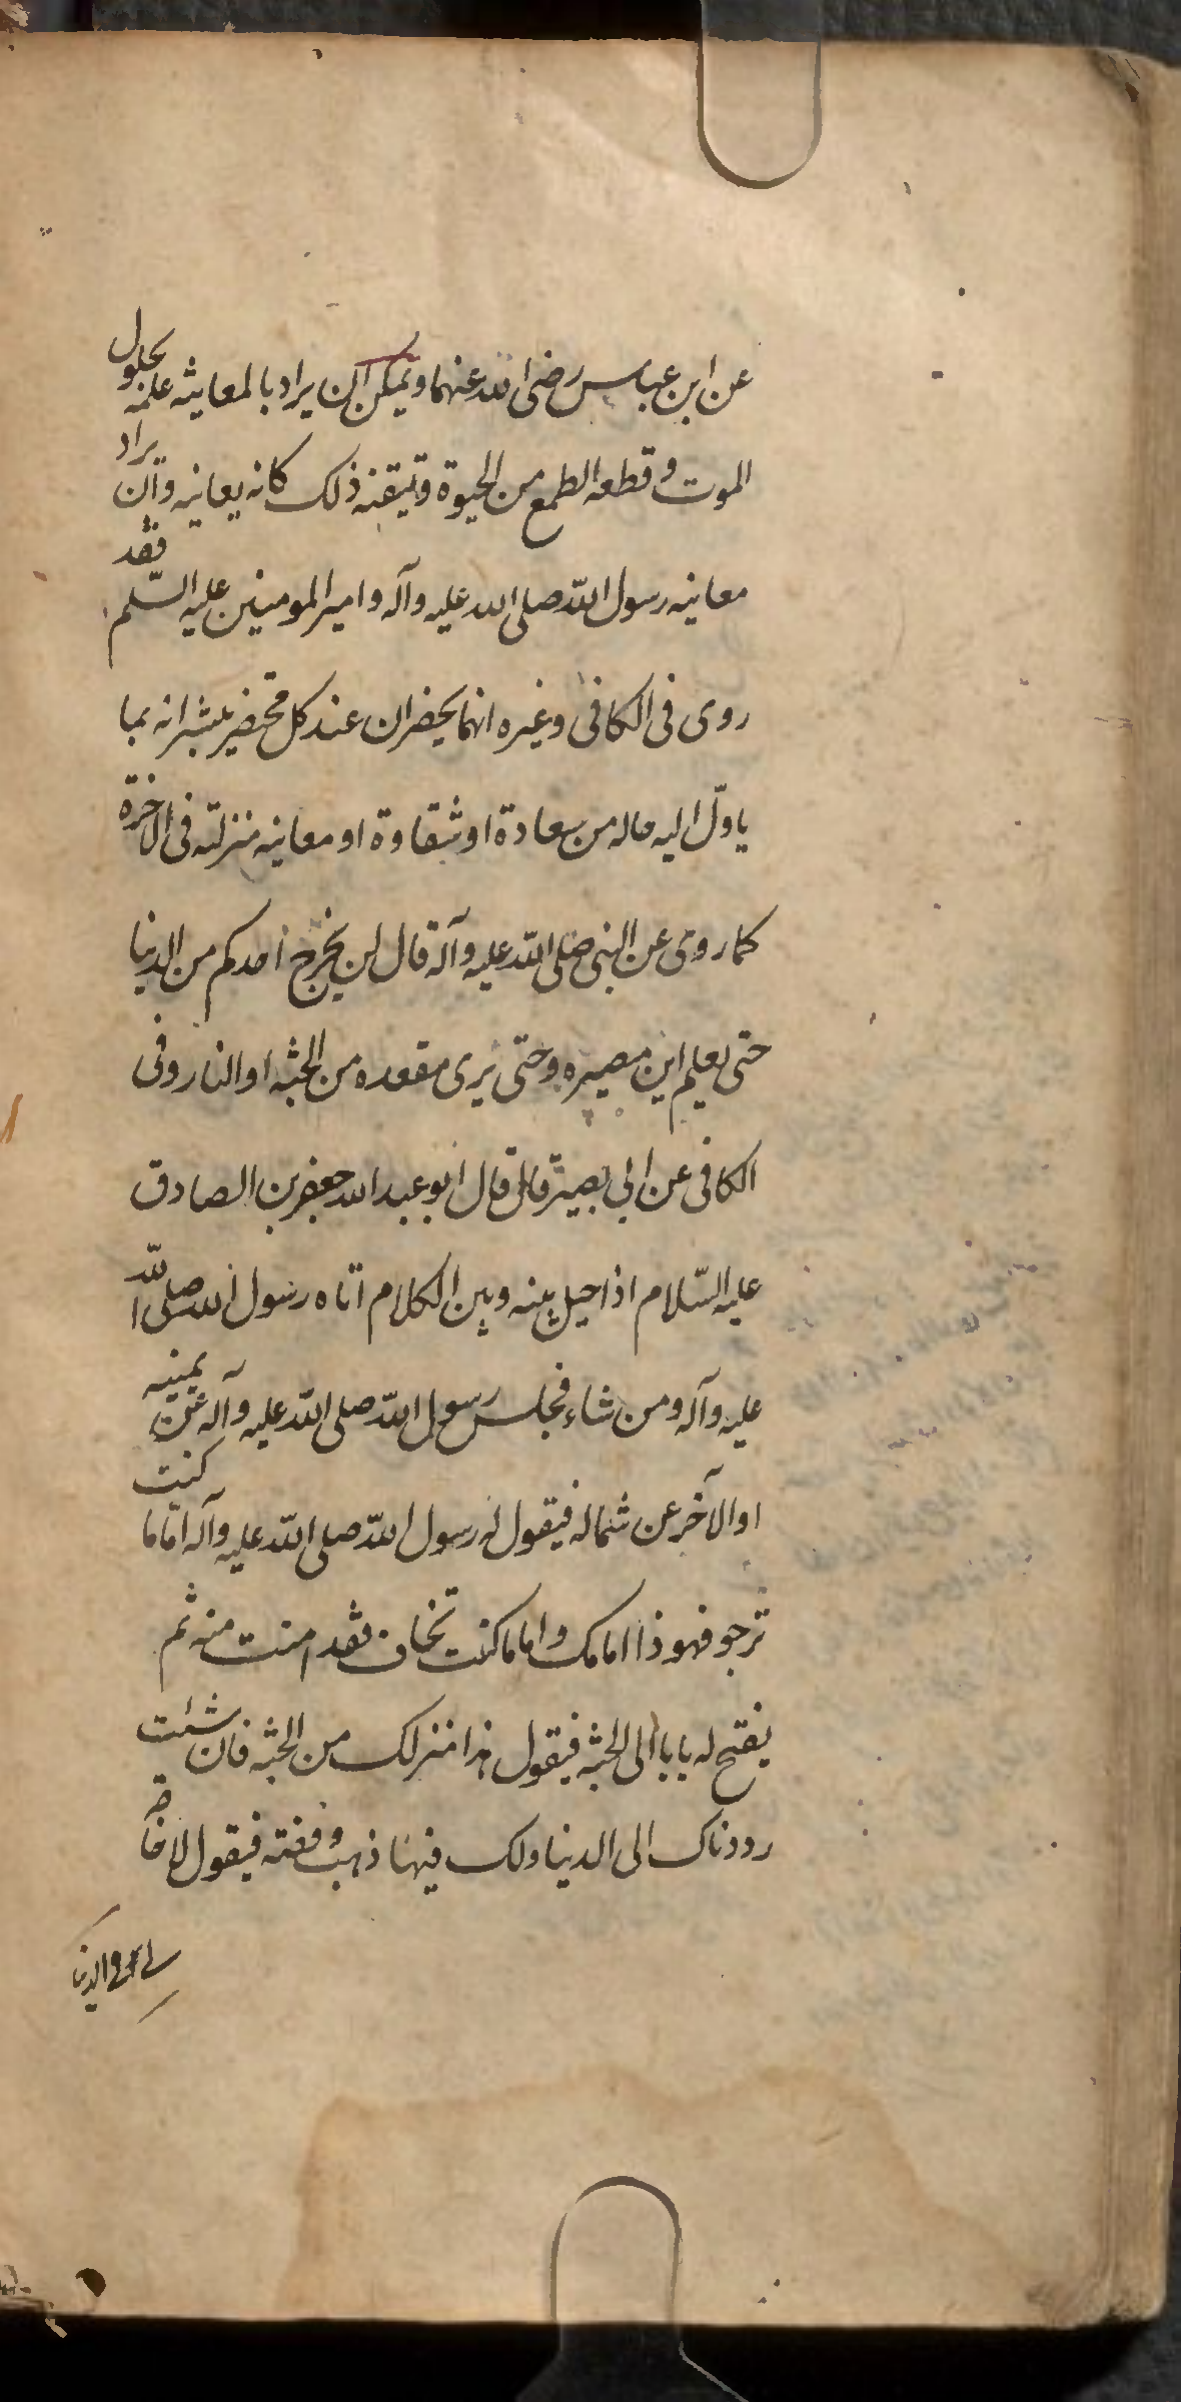 عن ابن عباس رضى الله عنهما ويمكن ان يراد بالمعاينة علمه بحلول
الموت وقطعه الطمع من الحيوة وتيقنه ذلك كانه يعاينه وان يراد
معاينه رسول الله صلى الله عليه وآله وامير المومنين عليه السلم فقد
روى فى الكافى وغيره انهما يحضران عند كل محتضر يبشرانه بما
ياول اليه حاله من سعادة او شقاوة او معاينه منزلته فى الاخرة
كما روى عن النبى صلى الله عليه وآله قال لن يخرج احدكم من الدنيا
حتى يعلم اين مصيره وحتى يرى مقعده من الجنة او النار وفى
الكافى عن ابى بصير قال قال ابو عبد الله جعفر بن الصادق
عليه السّلام اذا حيل بينه وبين الكلام اتاه رسول الله صلى الله
عليه وآله ومن شاء فجلس رسول الله صلى الله عليه وآله عن يمينه
او الآخر عن شماله فيقول له رسول الله صلى الله عليه وآله اما ما كنت
ترجو فهو ذا امامك واما ما كنت تخاف فقد امنت منه ثم
يفتح له بابا الى الجنة فيقول هذا منزلك من الجنة فان شئت
رددناك الى الدنيا ولك فيها ذهب وفضة فيقول لا حاجة
لى فى الدنيا